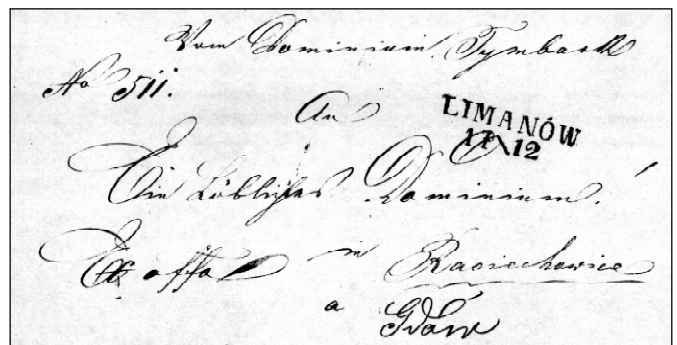 Vom Dominium Tymbark
No 511.
An
LIMANÓW
17 12
Ein Löbliches Dominium!
in Raciechowice
a Gdów